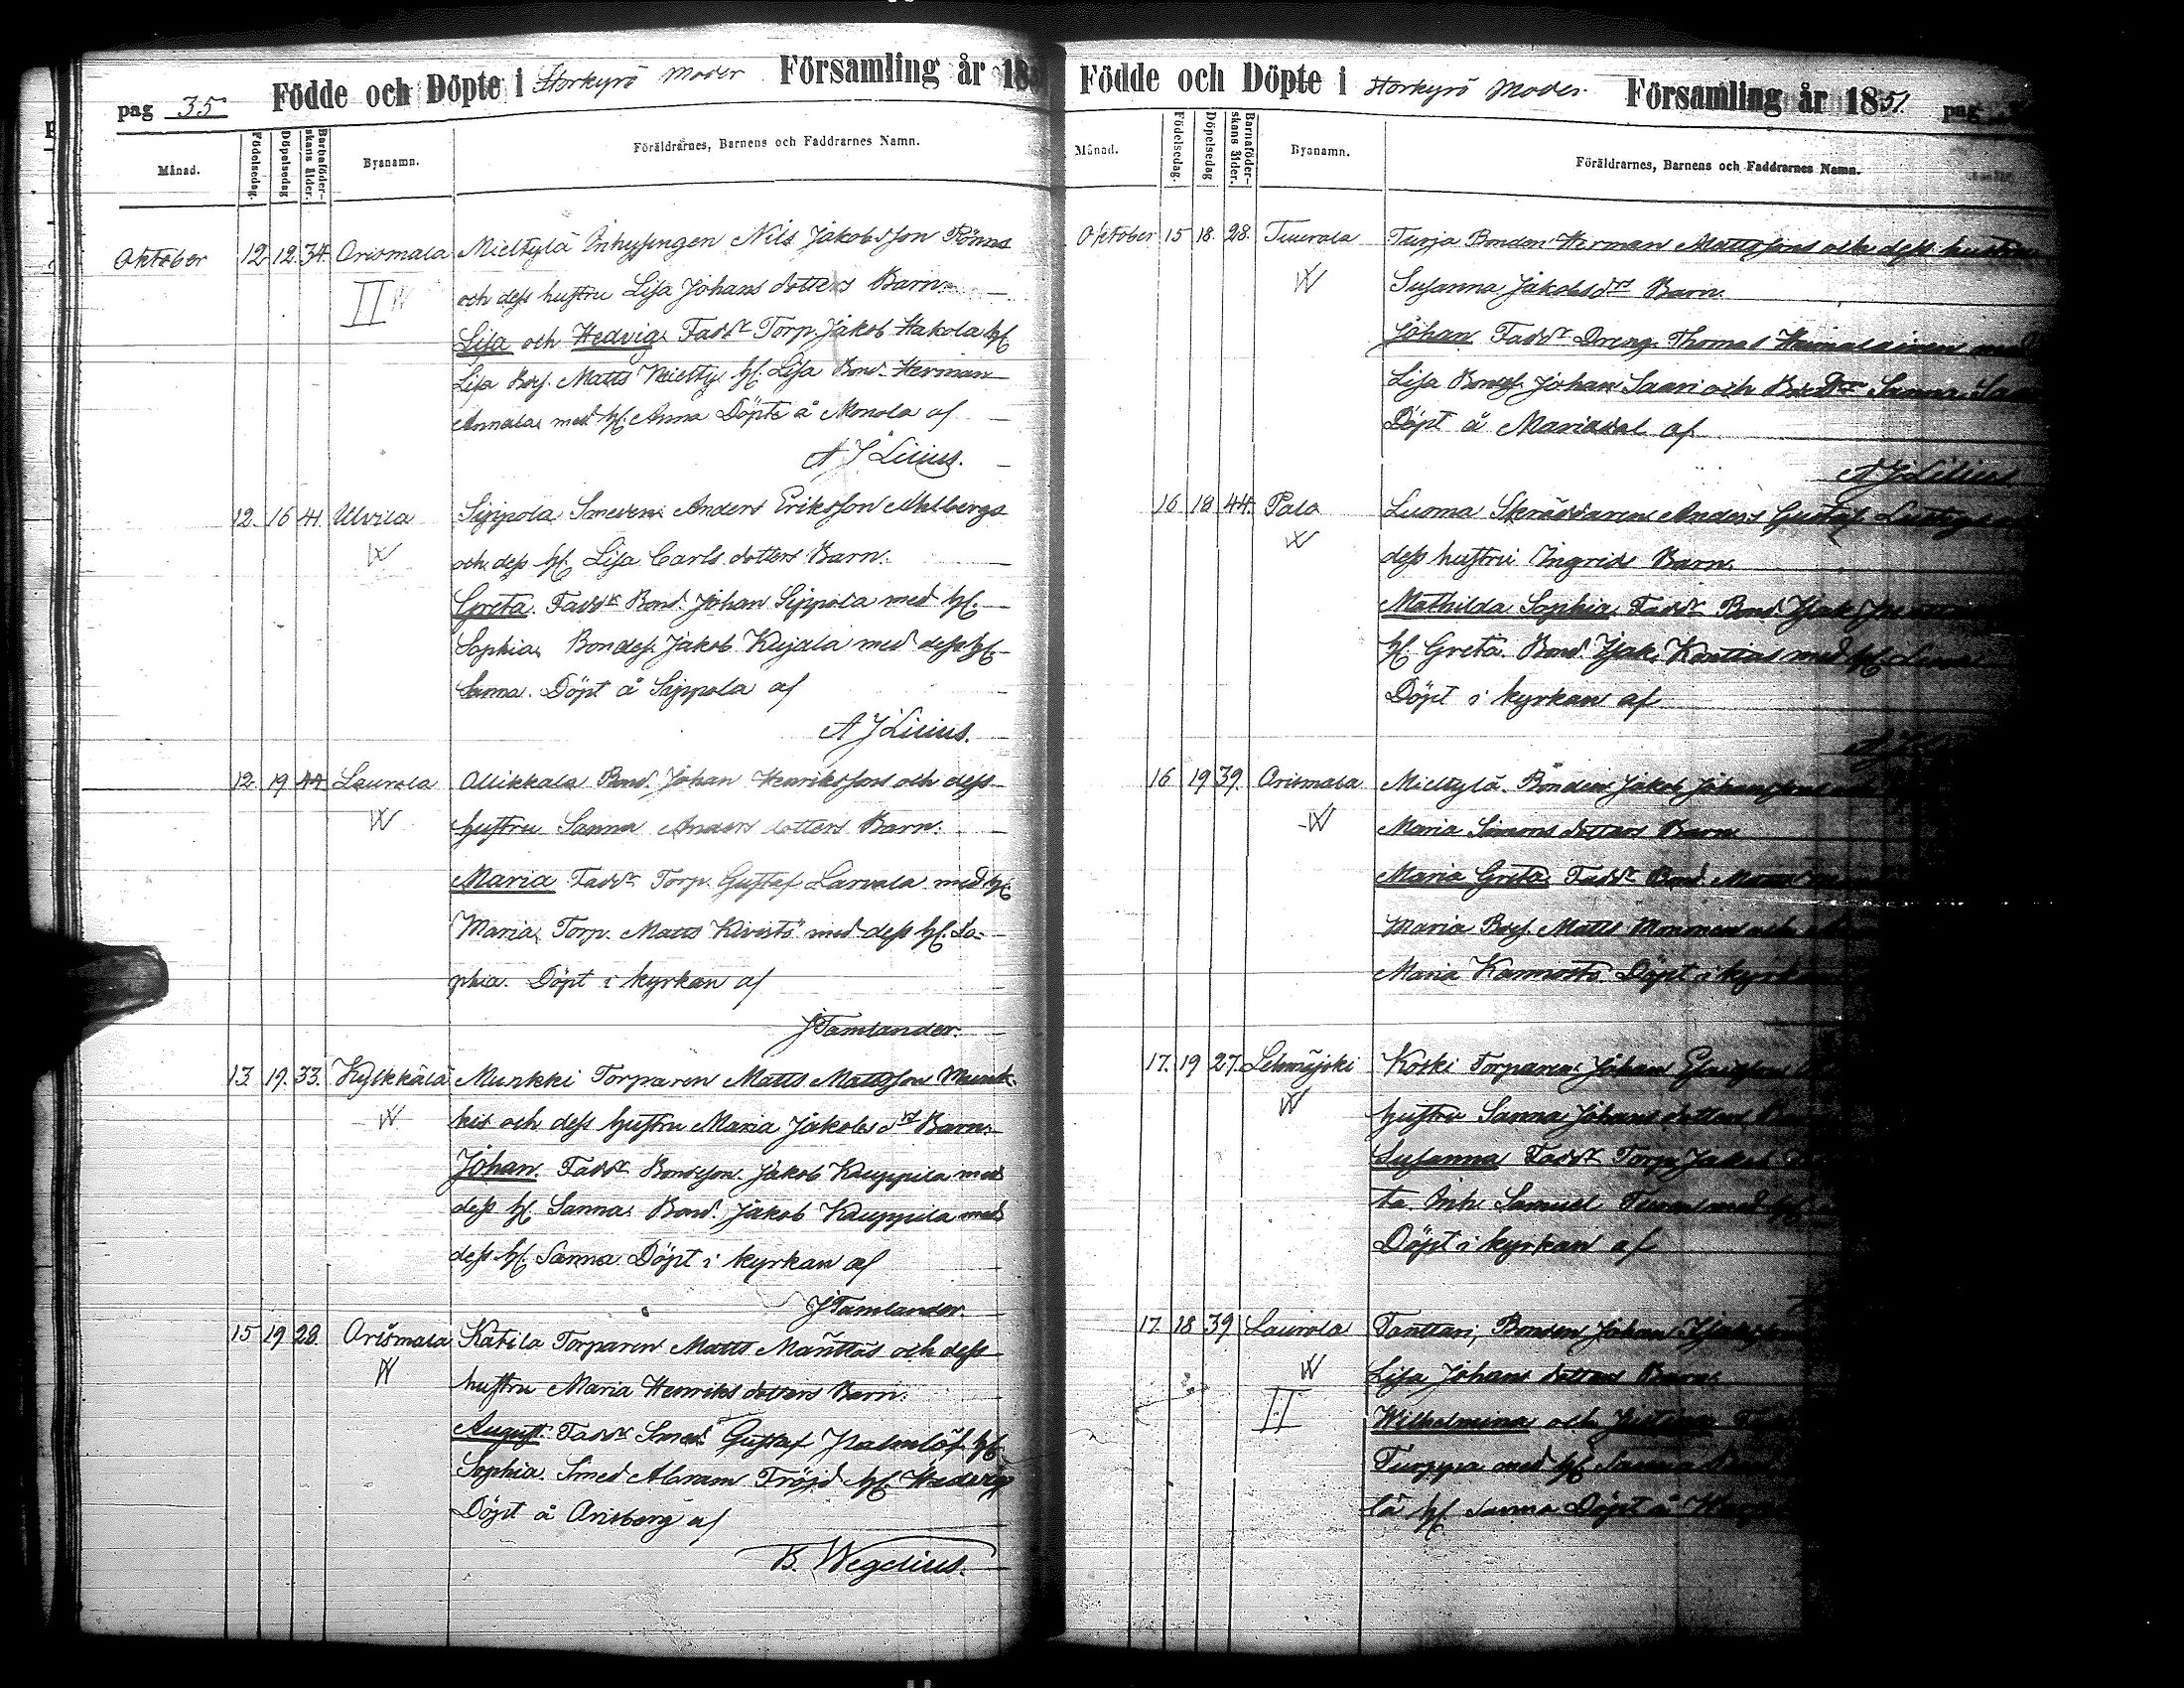 pag 35 Födde och Döpte i Storkyrö Moder Församling år 185
Månad. Födelsedag. Döpelsedag Barnaföder-skans ålder. Byanamn. Föräldrarnes, Barnens och Faddrarnes Namn.
Oktober 12 12. 34. Orismala Mieltylä Inhysingen Nils Jakobsson Rönns
II W och dess hustru Lisa Johans dotters Barn.
Lisa och Hedvig. Faddr Torp. Jakob Hakola hf
Lisa Bdsf. Matts Mielty hf. Lisa Bond. Herman
Annala med hf. Anna Döpte å Monola af
A J Lilius.
12. 16 41. Ulvila Sippola Smeden Anders Eriksson Ahlbergs
W och dess hf. Lisa Carls dotters Barn.
Greta. Faddr Bond. Johan Sippola med hf.
Sophia, Bondes. Jakob Keijala med dess hf.
Sanna. Döpt å Sippola af
A J Lilius.
12. 19 44 Laurola Ollikkala Bond. Johan Henriksson och dess
W hustru Sanna Anders dotters Barn.
Maria Faddr Torp. Gustaf Larvala med hf
Maria, Torp. Matts Kivistö med dess hf. So-
phia. Döpt i kyrkan af
J Tamlander.
13. 19. 33. Kylkkälä Murkki Torparen Matts Mattsson
W kis och dess hustru Maria Jakobs dr Barn.
Johan. Faddr Bondson. Jakob Kauppila med
dess hf. Sanna. Bond. Jakob Kauppila med
dess hf. Sanna Döpt i kyrkan af
J Tamlander.
15 19 28. Orismala Katila Torparen Matts Mänttäs och dess
W hustru Maria Henriks dotters Barn.
August. Faddr Smed Gustaf Palmlöf hf.
Sophia. Smed Abram Fröjd hf. Hedvig
Döpt å Orisberg af
B. Wegelius.
Födde och Döpte i Storkyrö Moder Församling år 1851. pag
Månad. Födelsedag. Döpelsedag Barnaföder-skans ålder. Byanamn. Föräldrarnes, Barnens och Faddrarnes Namn.
Oktober 15 18. 28. Tuurala Turja Bonden Herman Mattssons och dess hustru
W Susanna Jakobsdrs Barn.
Johan Faddr Dreng. Thomas med
Lisa Bondes. Johan Saari och Sanna
Döpt å Mariedal af
A J Lilius
16 18 44. Palo Luoma Skräddaren Anders Gustaf
W dess hustru Ingrids Barn.
Mathilda Sophia. Faddr Bond. Isak
hf Greta. Bond. Isak Kontias med hf.
Döpt i kyrkan af
A J
16 19 39. Orismala Mieltylä. Bonden Jakob Johanssons
W Maria Simons dotters Barn
Maria Greta. Faddr Bond.
Maria Bdsf. Matts och
Maria Döpt i kyrkan
17. 19 27. Lehmäjoki Koski Torparen Johan
W hustru Sanna Johans dotters
Susanna Faddr Torp Jakob
ta Inh. Samuel med hf
Döpt i kyrkan af
17. 18 39 Laurola Tanttari, Bonden Johan
W Lisa Johans dotters Barn.
II Wilhelmina och
Turppa med hf Sanna
lä hf. Sanna Döpt å